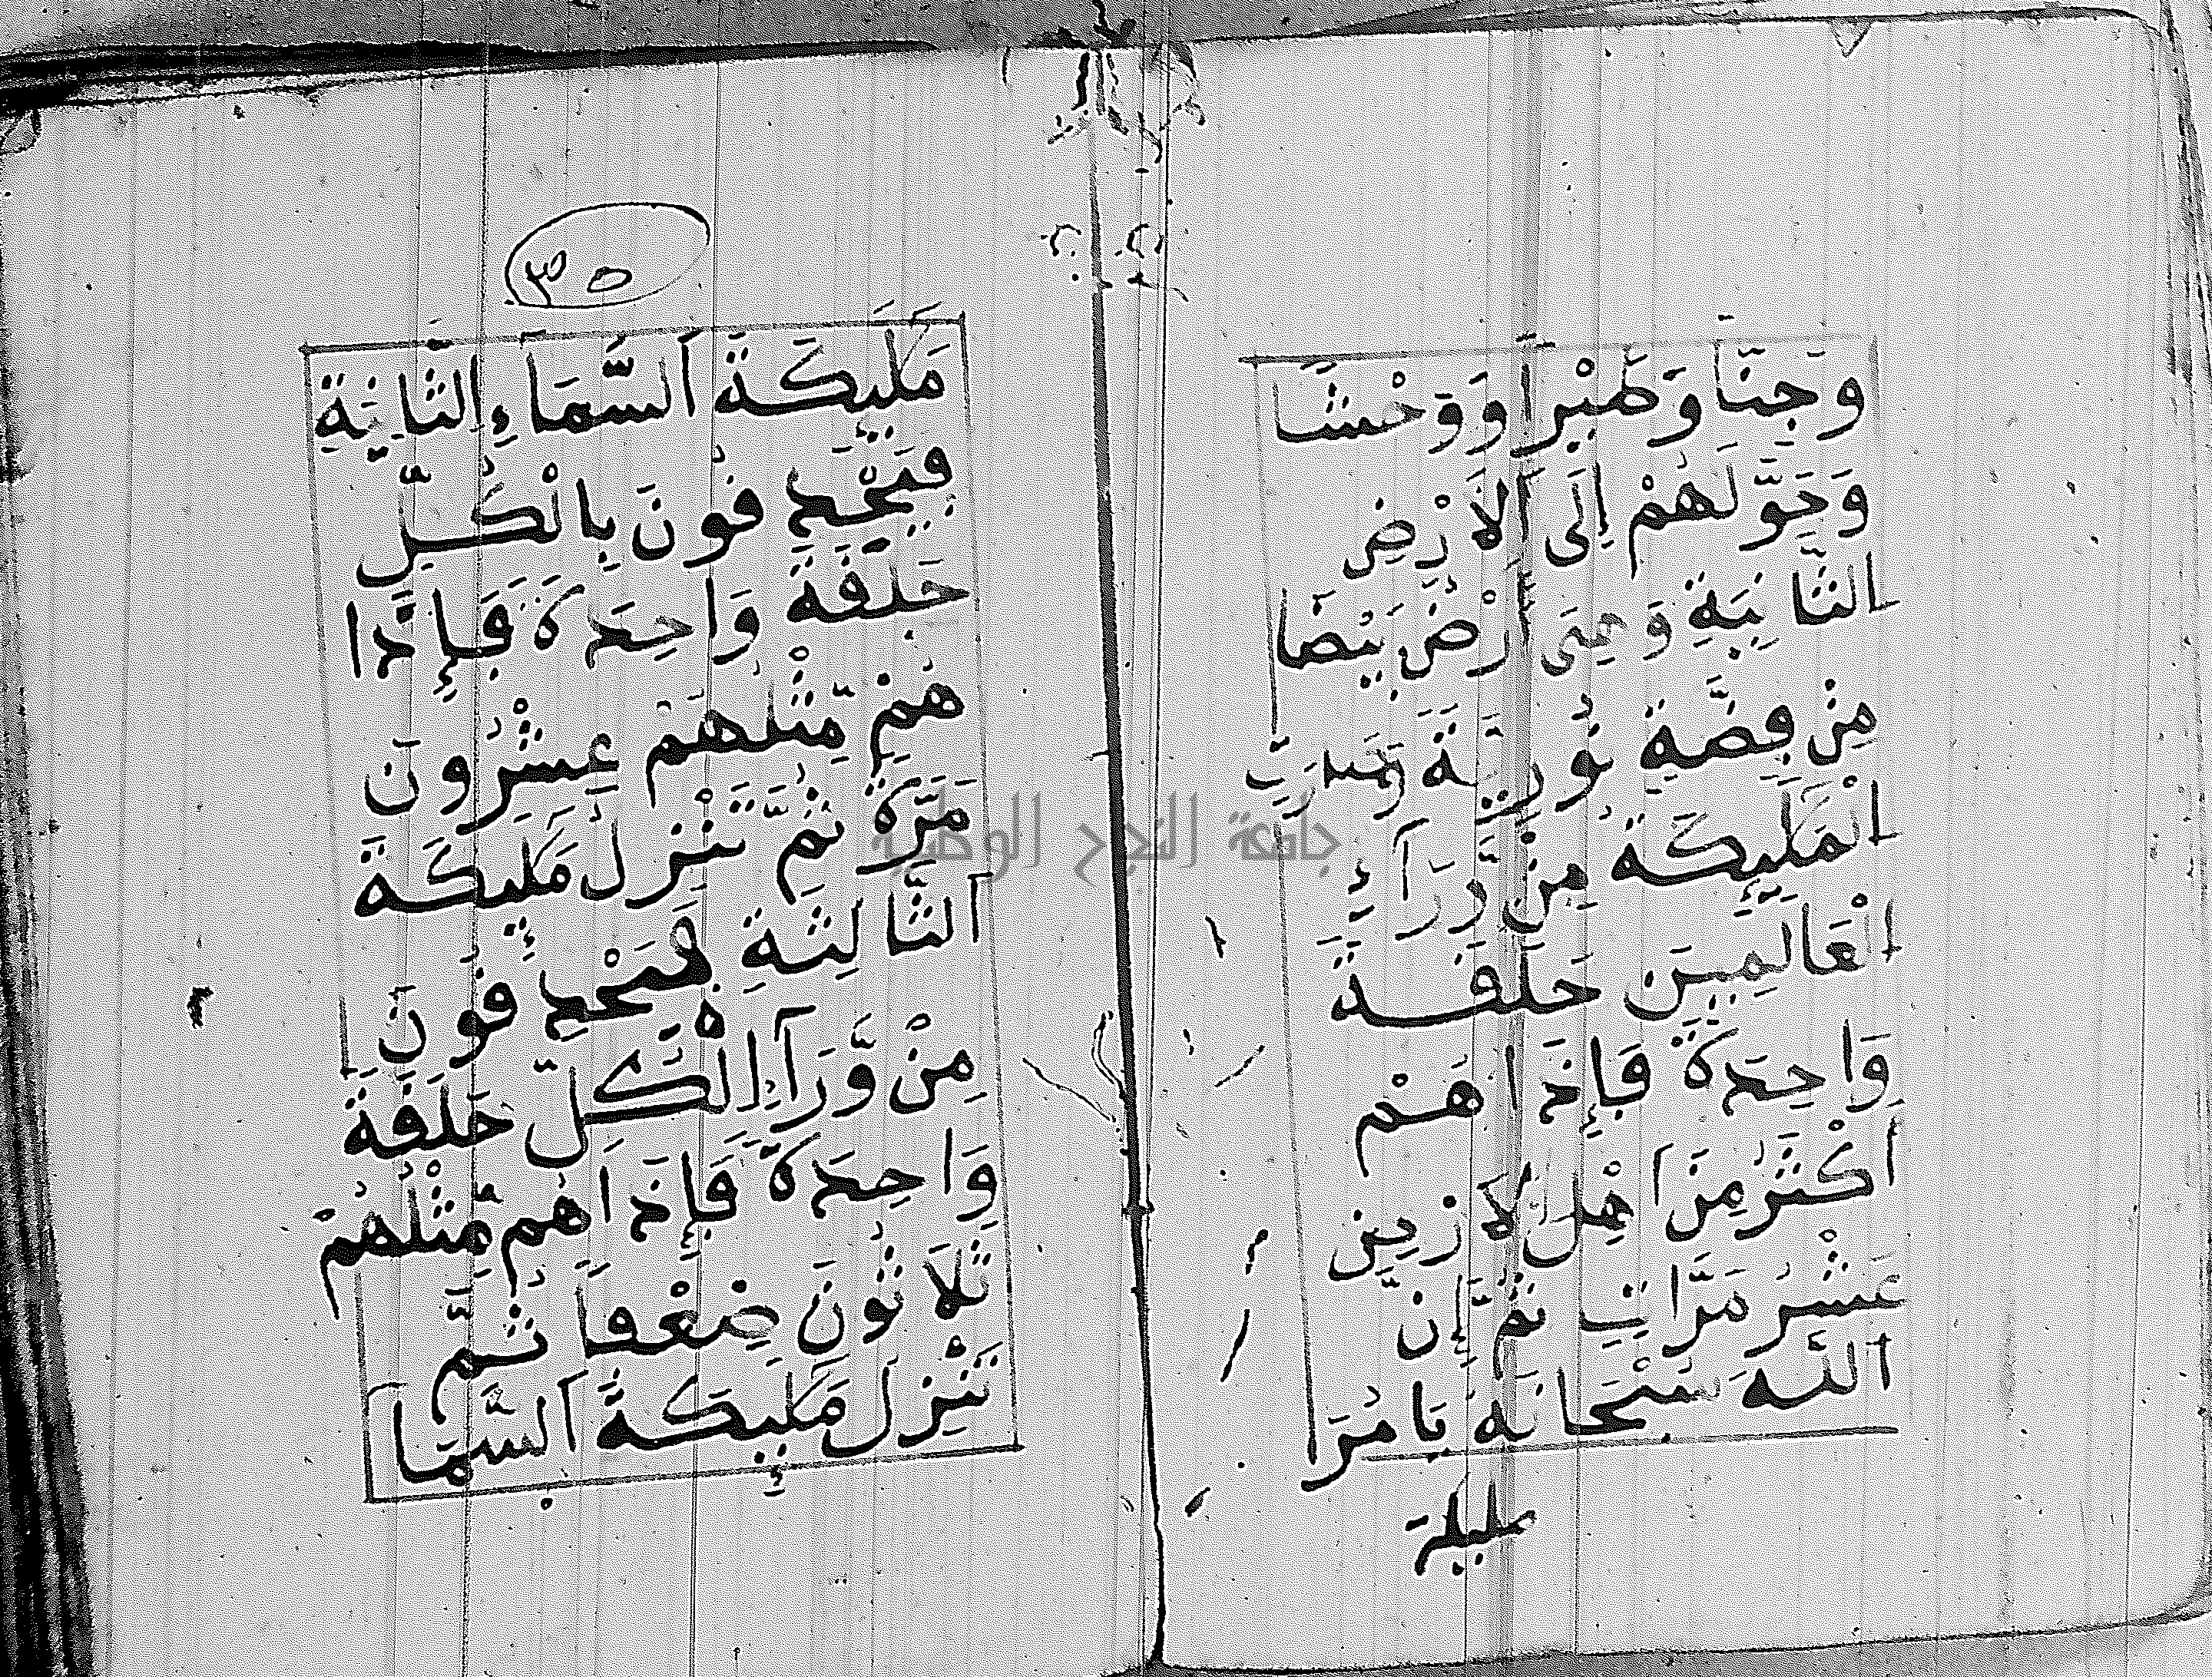 وَجِنًّا وَطَيْرًا وَوَحْشًا
وَحَوَّلَهُمْ اِلَى اَلاَرْضِ
الثَّانِيَةِ وَهِيَ أَرْضٌ بَيْضَا
مِنْ فِضَّةٍ نُورِيَّةٍ
الْمَلَيِكَةُ مِنْ وَّرَآءِ
الْعَالَمِينَ حَلَقَةً
وَاحِدَةً فَإِذَا هُمْ
اَكْثَرُ مِنْ اَهْلِ الاَرْضِينَ
عَشْرَ مَرَّاتٍ ثُمَّ إِنَّ
اَللَّهَ سُبْحَانَهُ يَامُرُ
مليكة
٣٥
مَلَيِكَةَ اَلسَّمَآءِ الثَّانِيَةِ
فَيَحْدِقُونَ بِالْكُلِّ
حَلَقَةً وَاحِدَةً فَإِذَا
هُمْ مِّثْلُهُمْ عِشْرُونَ
مَرَّةً ثُمَّ تَنْزِلُ مَلَيِكَةُ
اَلثَّالِثَةِ فَيَحْدِقُونَ
مِنْ وَّرَآءِ الْكُلِّ حَلَقَةً
وَاحِدَةً فَإِذَا هُمْ مِّثْلُهُمْ
ثَلاَثُونَ ضِعْفًا ثُمَّ
تَنْزِلُ مَلَيِكَةُ اَلسَّمَآ
جامعة النجاح الوطنية